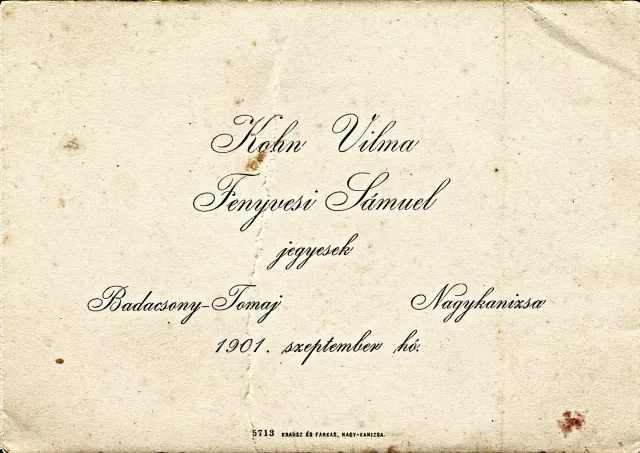 Kohn Vilma
Fenyvesi Sámuel
jegyesek
Badacsony-Tomaj Nagykanizsa
1901. szeptember hó.
5713 KRAUSZ ÉS FARKAS, NAGY-KANIZSA.